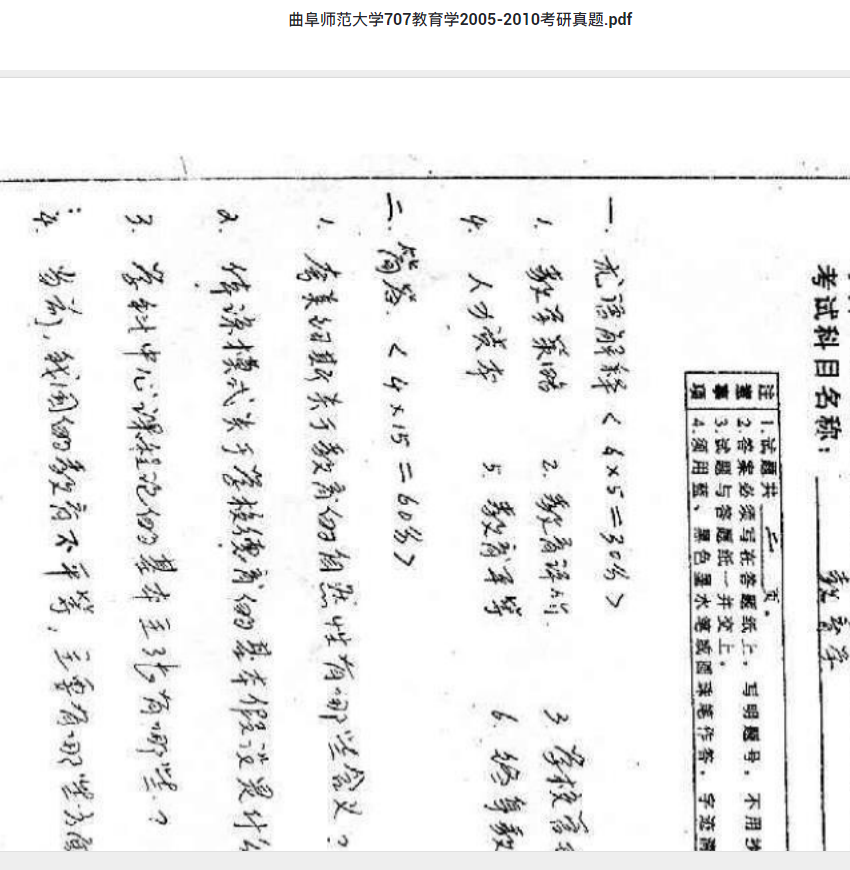 曲阜师范大学707教育学2005-2010考研真题.pdf
考试科目名称： 教育学
注意事项
1.试题共 二 页。
2.答案必须写在答题纸上，写明题号，不用
3.试题与答题纸一并交上。
4.须用蓝、黑色墨水笔或圆珠笔作答，字迹清
一. 术语解释 <6×5=30分>
1. 教学策略 2. 教育评价. 3 学校管
4. 人力资本 5. 教育平等 6. 终身教
二. 简答. <4×15=60分>
1. 夸美纽斯关于教育的自然性有哪些含义？
2. 体谅模式关于学校德育的基本假设是什
3. 学科中心课程论的基本主张有哪些？
4. 当前，我国的教育不平等，主要有哪些方面